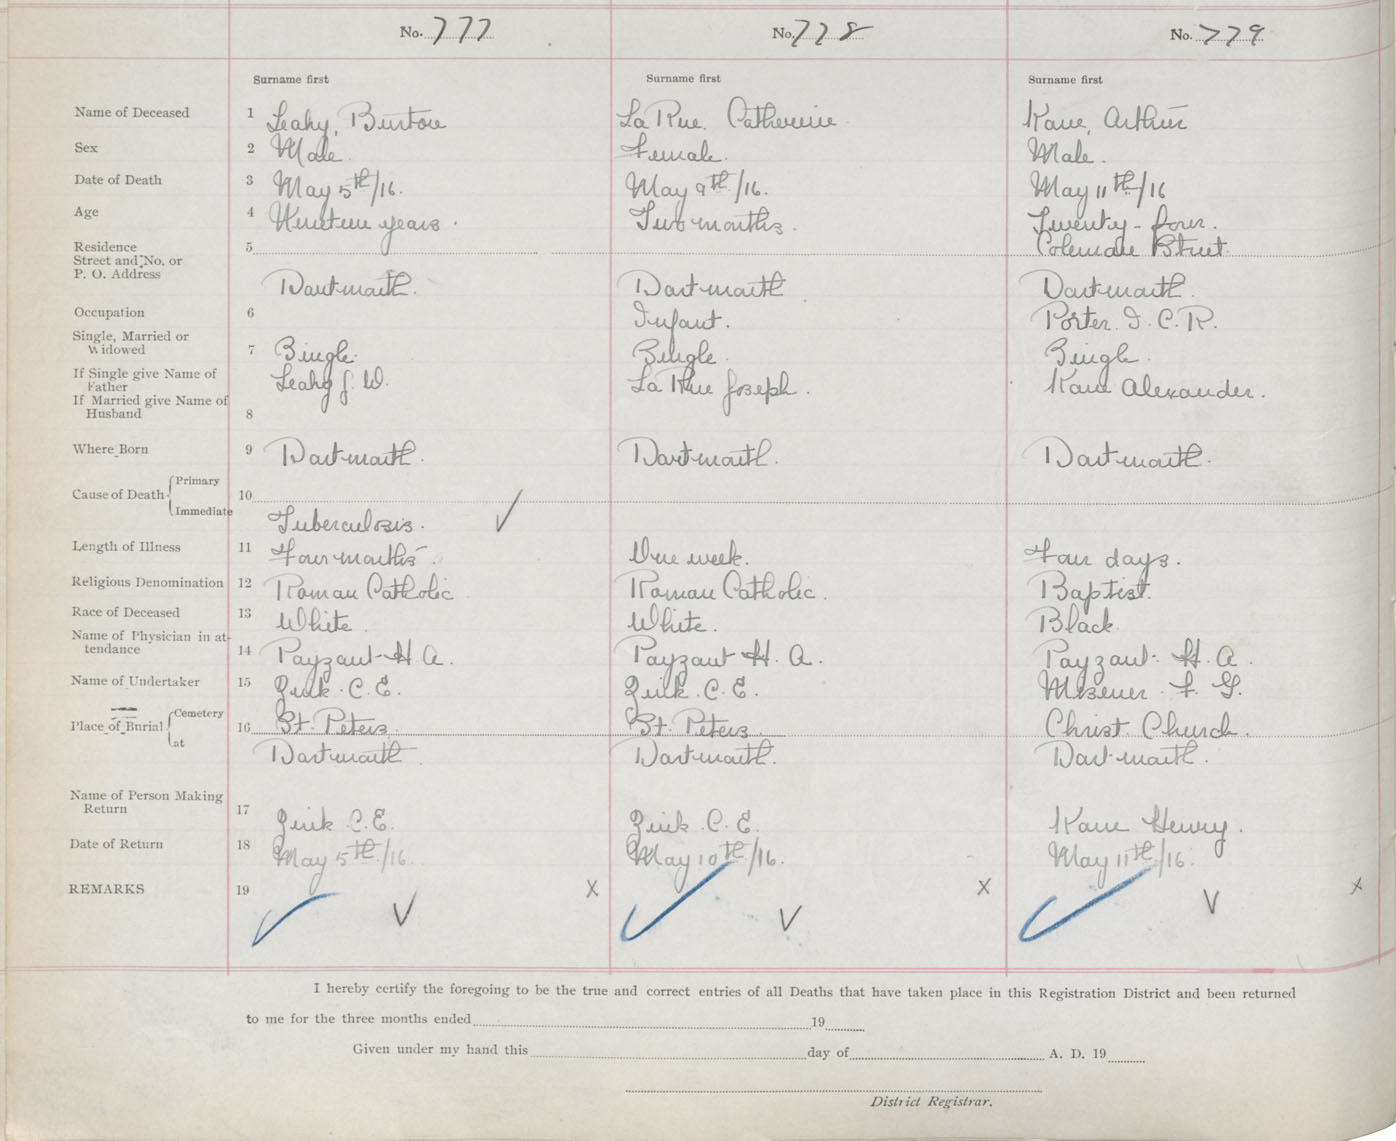 No. 777 No. 778 No. 779
Surname first Surname first Surname first
Name of Deceased 1 Leahy, Burton La Rue, Catherine Kane, Arthur
Sex 2 Male. Female. Male.
Date of Death 3 May 5th/16. May 9th/16. May 11th/16
Age 4 Nineteen years. Two months. Twenty-four.
Residence 5 Coleman Street.
Street and No. or
P. O. Address Dartmouth. Dartmouth Dartmouth.
Occupation 6 Infant. Porter. I. C. R.
Single, Married or
Widowed 7 Single. Single. Single.
If Single give Name of
Father Leahy J. W. La Rue Joseph. Kane Alexander.
If Married give Name of
Husband 8
Where Born 9 Dartmouth. Dartmouth. Dartmouth.
Primary
Cause of Death 10
Immediate Tuberculosis. ✓
Length of Illness 11 Four months One week. Four days.
Religious Denomination 12 Roman Catholic Roman Catholic. Baptist.
Race of Deceased 13 White. White. Black
Name of Physician in at-
tendance 14 Payzant H. A. Payzant H. A. Payzant H. A.
Name of Undertaker 15 Zink. C. E. Zink. C. E. Misener. F. G.
Cemetery
Place of Burial 16 St. Peters. St. Peters. Christ Church.
at Dartmouth. Dartmouth. Dartmouth.
Name of Person Making
Return 17 Zink C. E. Zink. C. E. Kane Henry.
Date of Return 18 May 5th/16. May 10th/16. May 11th/16.
REMARKS 19 ✓ V X ✓ V X ✓ V X
I hereby certify the foregoing to be the true and correct entries of all Deaths that have taken place in this Registration District and been returned
to me for the three months ended 19
Given under my hand this day of A. D. 19
District Registrar.